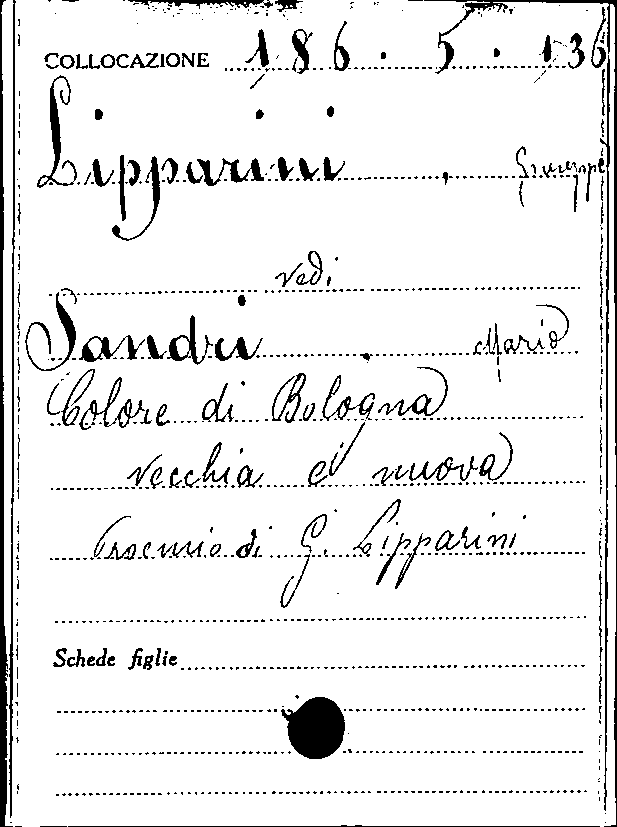 COLLOCAZIONE 186. 5. 136
Lipparini, Giuseppe
vedi
Sandri. Mario
Colore di Bologna
vecchia e nuova
Proemio di G. Lipparini
Schede figlie